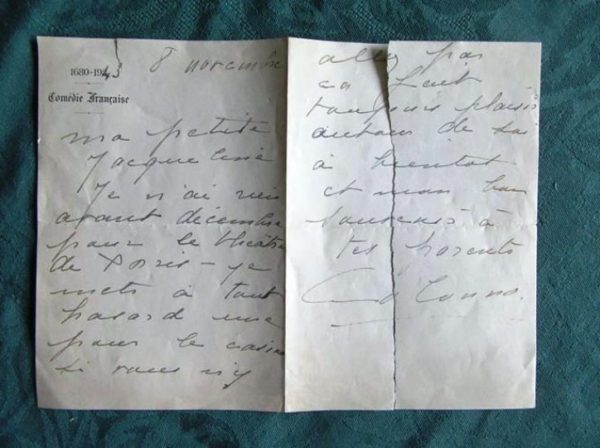 1680-1943
8 novembre
Comédie Française
ma petite
Jacqueline
Je n'ai rien
avant décembre
pour le théâtre
de Paris - je
mets à tout
hasard une
pour le casino
si vous n'y
allez pas
ça fait
toujours plaisir
autour de soi
à bientôt
et mon bon
souvenir à
tes parents